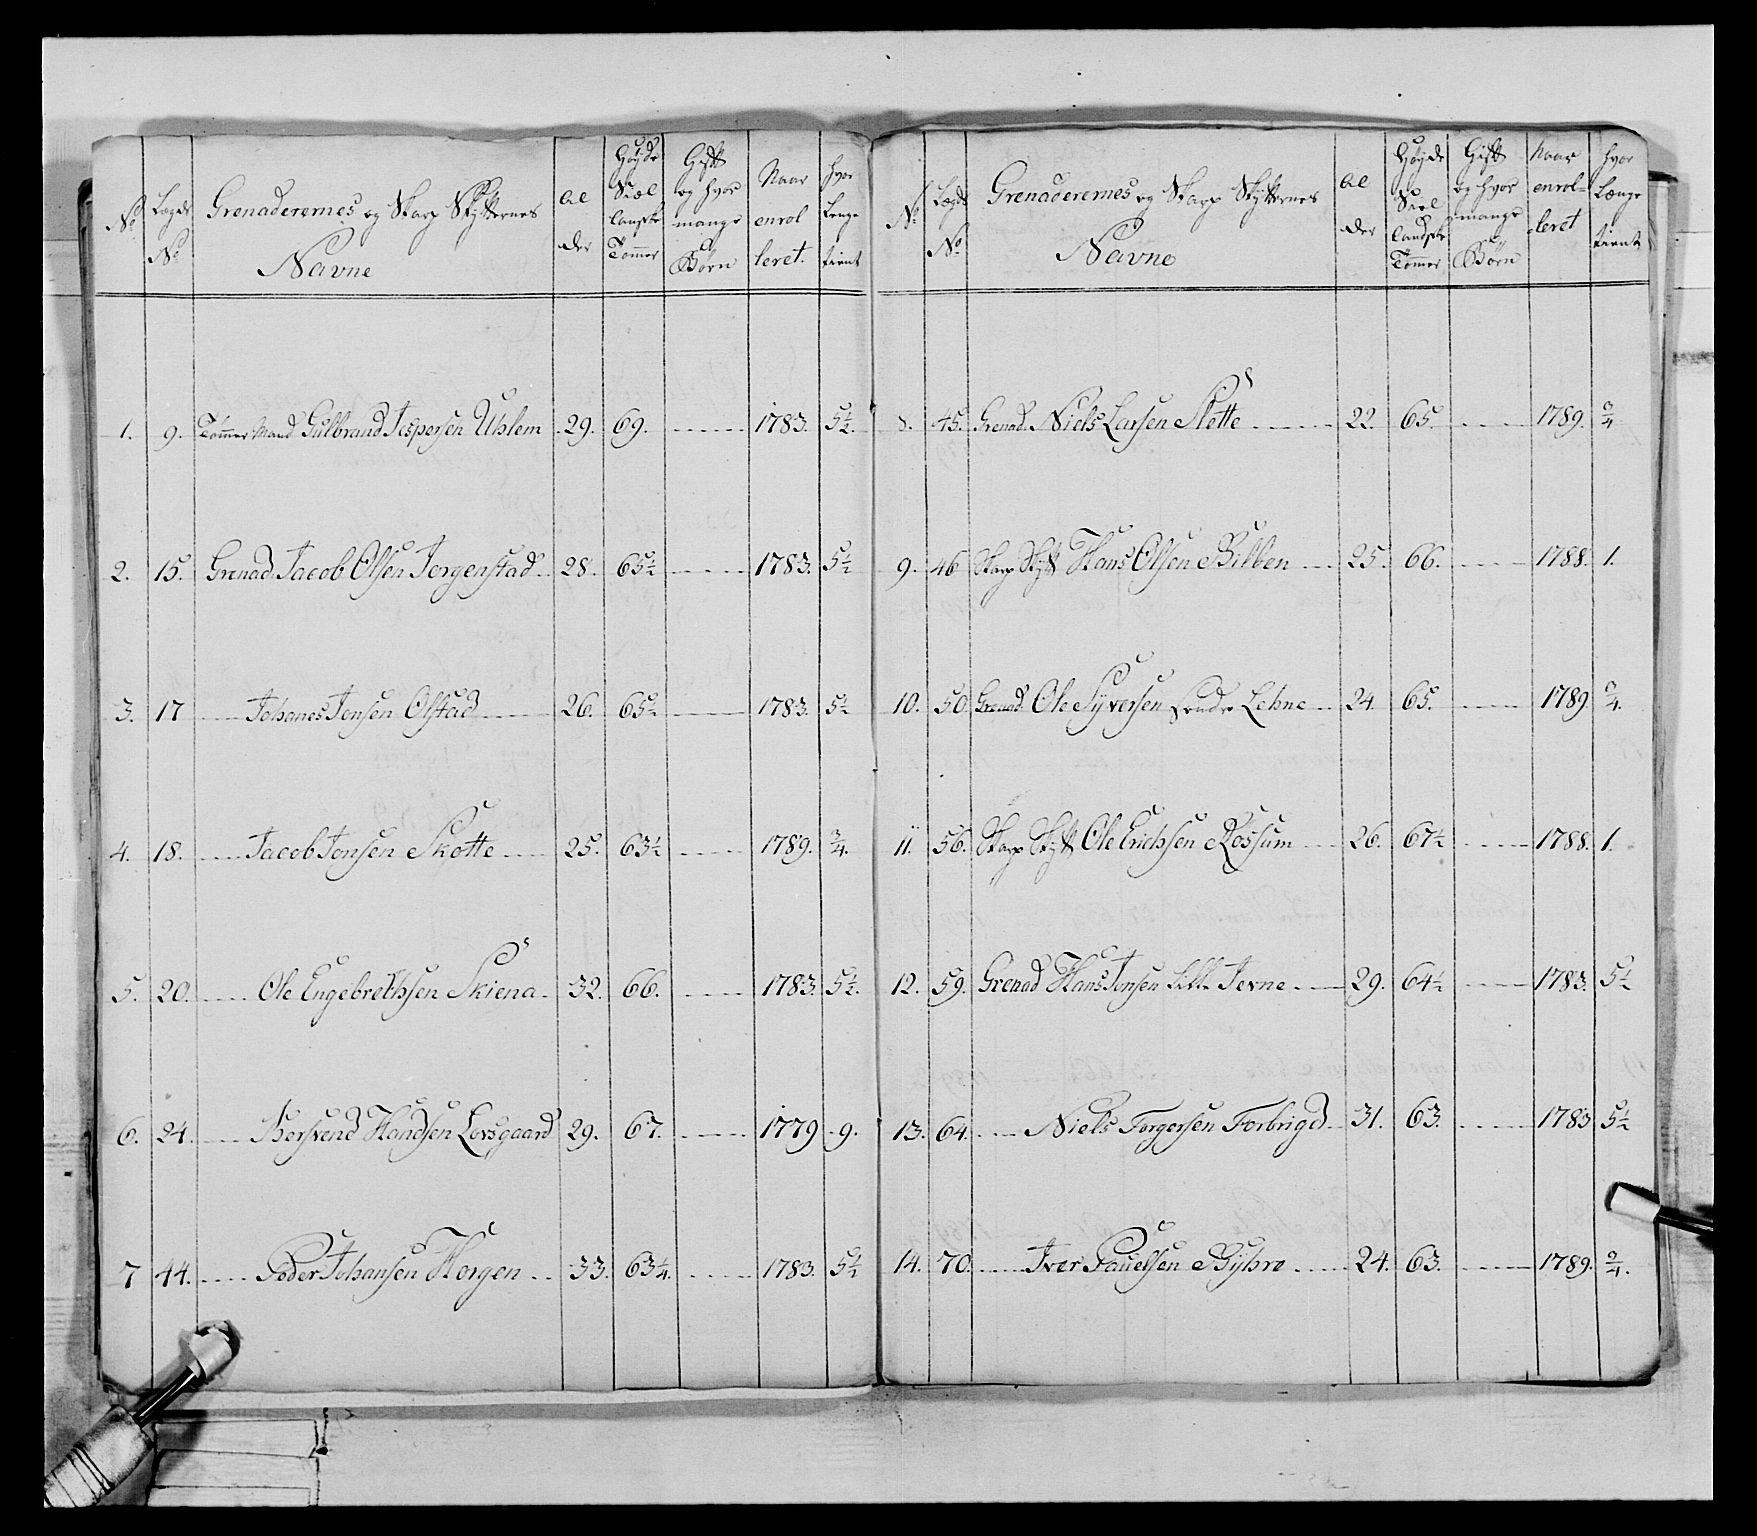 No Lægds No Grenaderernes og Skarp Skytternes Navne Alder Høyde Siællandske Tommer Gift og hvor mange Børn Naar enrolleret. hvor Lenge tient
1. 9. Tømmer Mand Gulbrand Jespersen Uhlem 29. 69. 1783. 5½.
2. 15. Grenad Jacob Olsen Jorgenstad 28. 65½ 1783. 5½
3. 17 Johanes Jonsen Olstad 26. 65½ 1783. 5½
4. 18. Jacob Jonsen Skotte 25. 63½ 1789. ¾.
5. 20. Ole Engebrethsen Skiena 32. 66. 1783. 5½.
6. 24. Bersvend Handsen Lovsgaard 29. 67. 1779 9.
7 44. Peder Johansen Horgen 33. 63¼. 1783. 5½
No Lægds No Grenaderernes og Skarp Skytternes Navne Alder Høyde Siællandske Tommer Gift og hvor mange Børn Naar enrolleret hvor Længe tient
8. 45. Grenad. Niels Larsen Slette 22. 65. 1789. ¾
9. 46 Skarp Skytt Hans Olsen Bilben 25. 66. 1788. 1.
10. 50 Grenad. Ole Syversen søndre Lehne 24. 65. 1789. ¾.
11. 56. Skarp Skytt Ole Erichsen Rossum 26. 67½ 1788. 1.
12. 59. Grenad Hans Jonsen Lille Jevne 29. 64½ 1783. 5½
13. 64. Niels Torgersen Forbrigd 31. 63. 1783 5½
14. 70. Iver Pauelsen Bÿhro 24. 63. 1789. ¾.